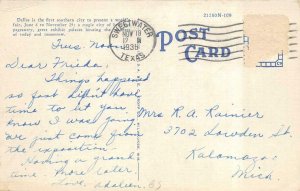 Dallas is the first southern city to present a
fair, June 6 to November 29; a magic city of
pageantry, priceless exhibits picturing the
of today and tomorrow.
21150N-109
SWEETWATER
NOV 18
1936
TEXAS
POST
CARD
Tues. Noon
Dear Frieda,
Things happened
so fast didn't have
time to let you
know I was going.
We just come from
the exposition.
Having a grand
time. More later.
Love,
Mrs. R. A. Rainier
3702 Lowden St.
Kalamazoo
Mich.